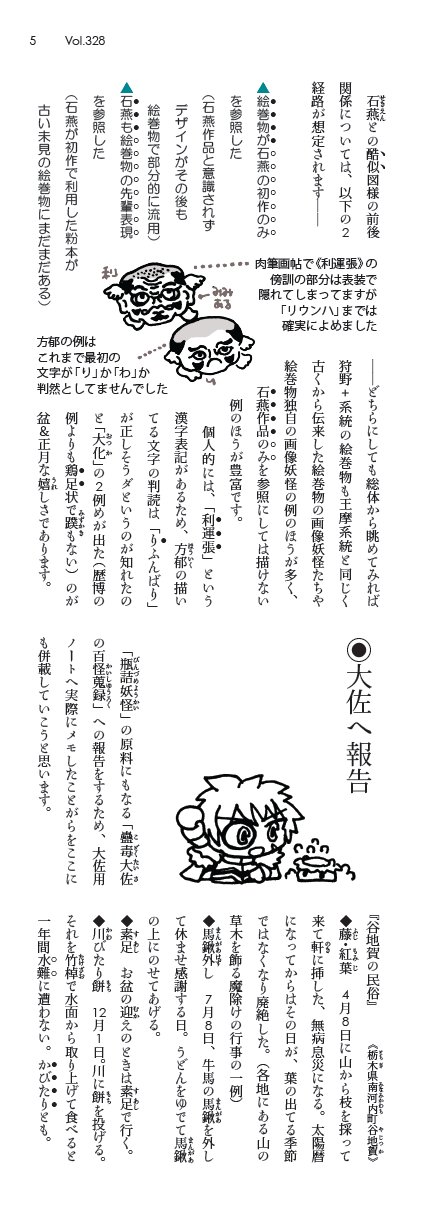 5 Vol.328
石燕との酷似図様の前後
関係については、以下の2
経路が想定されます――
▲絵巻物が石燕の初作のみ
を参照した
(石燕作品と意識されず
デザインがその後も
絵巻物で部分的に流用)
▲石燕も絵巻物の先輩表現
を参照した
(石燕が初作で利用した粉本が
古い未見の絵巻物にまだまだある)
肉筆画帖で《利運張》の
傍訓の部分は表装で
隠れてしまってますが
「リウンハ」までは
確実によめました
利
みみ
ある
方郁の例は
これまで最初の
文字が「り」か「わ」か
判然としてませんでした
――どちらにしても総体から眺めてみれば
狩野+系統の絵巻物も王摩系統と同じく
古くから伝来した絵巻物の画像妖怪たちや
絵巻物独自の画像妖怪の例のほうが多く、
石燕作品のみを参照にしては描けない
例のほうが豊富です。
個人的には、「利運張」という
漢字表記があるため、方郁の描い
てる文字の判読は、「りふんばり」
が正しそうダというのが知れたの
と「大化」の2例めが出た(歴博の
例よりも鶏足状で蹼もない)のが
盆&正月な嬉しさであります。
◉大佐へ報告
「瓶詰妖怪」の原料にもなる「蠱毒大佐
の百怪蒐録」への報告をするため、大佐用
ノートへ実際にメモしたことがらをここに
も併載していこうと思います。
『谷地賀の民俗』 《栃木県南河内町谷地賀》
◆藤・紅葉 4月8日に山から枝を採って
来て軒に挿した、無病息災になる。太陽暦
になってからはその日が、葉の出てる季節
ではなくなり廃絶した。(各地にある山の
草木を飾る魔除けの行事の一例)
◆馬鍬外し 7月8日、牛馬の馬鍬を外し
て休ませ感謝する日。うどんをゆでて馬鍬
の上にのせてあげる。
◆素足 お盆の迎えのときは素足で行く。
◆川びたり餅 12月1日。川に餅を投げる。
それを竹棹で水面から取り上げて食べると
一年間水難に遭わない。かびたりとも。